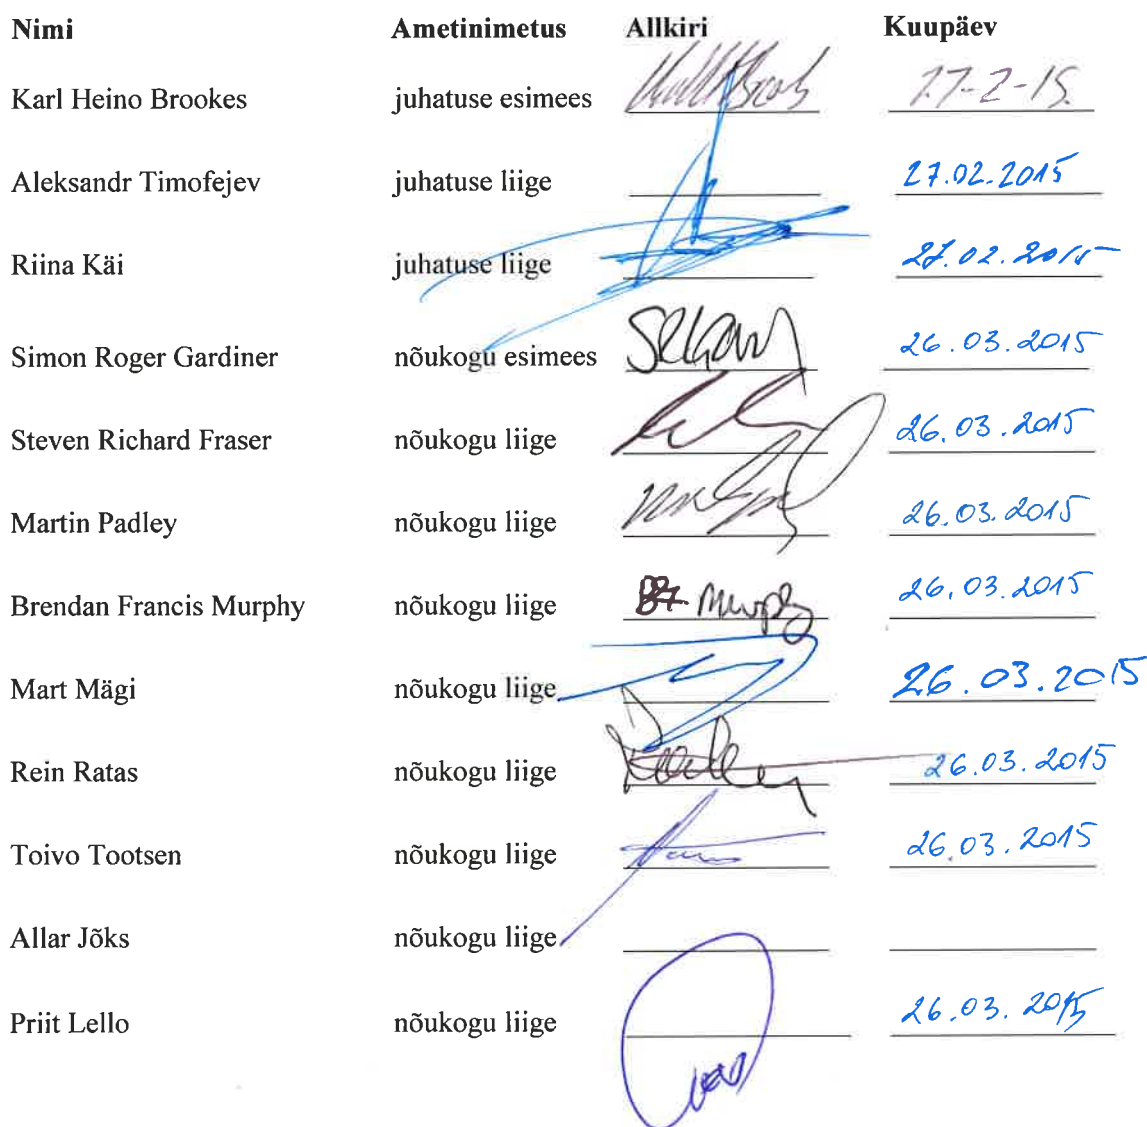 Nimi Ametinimetus Allkiri Kuupäev
Karl Heino Brookes juhatuse esimees 27-2-15.
Aleksandr Timofejev juhatuse liige 27.02.2015
Riina Käi juhatuse liige 27.02.2015
Simon Roger Gardiner nõukogu esimees 26.03.2015
Steven Richard Fraser nõukogu liige 26.03.2015
Martin Padley nõukogu liige 26.03.2015
Brendan Francis Murphy nõukogu liige Murphy 26.03.2015
Mart Mägi nõukogu liige 26.03.2015
Rein Ratas nõukogu liige 26.03.2015
Toivo Tootsen nõukogu liige 26.03.2015
Allar Jõks nõukogu liige
Priit Lello nõukogu liige 26.03.2015